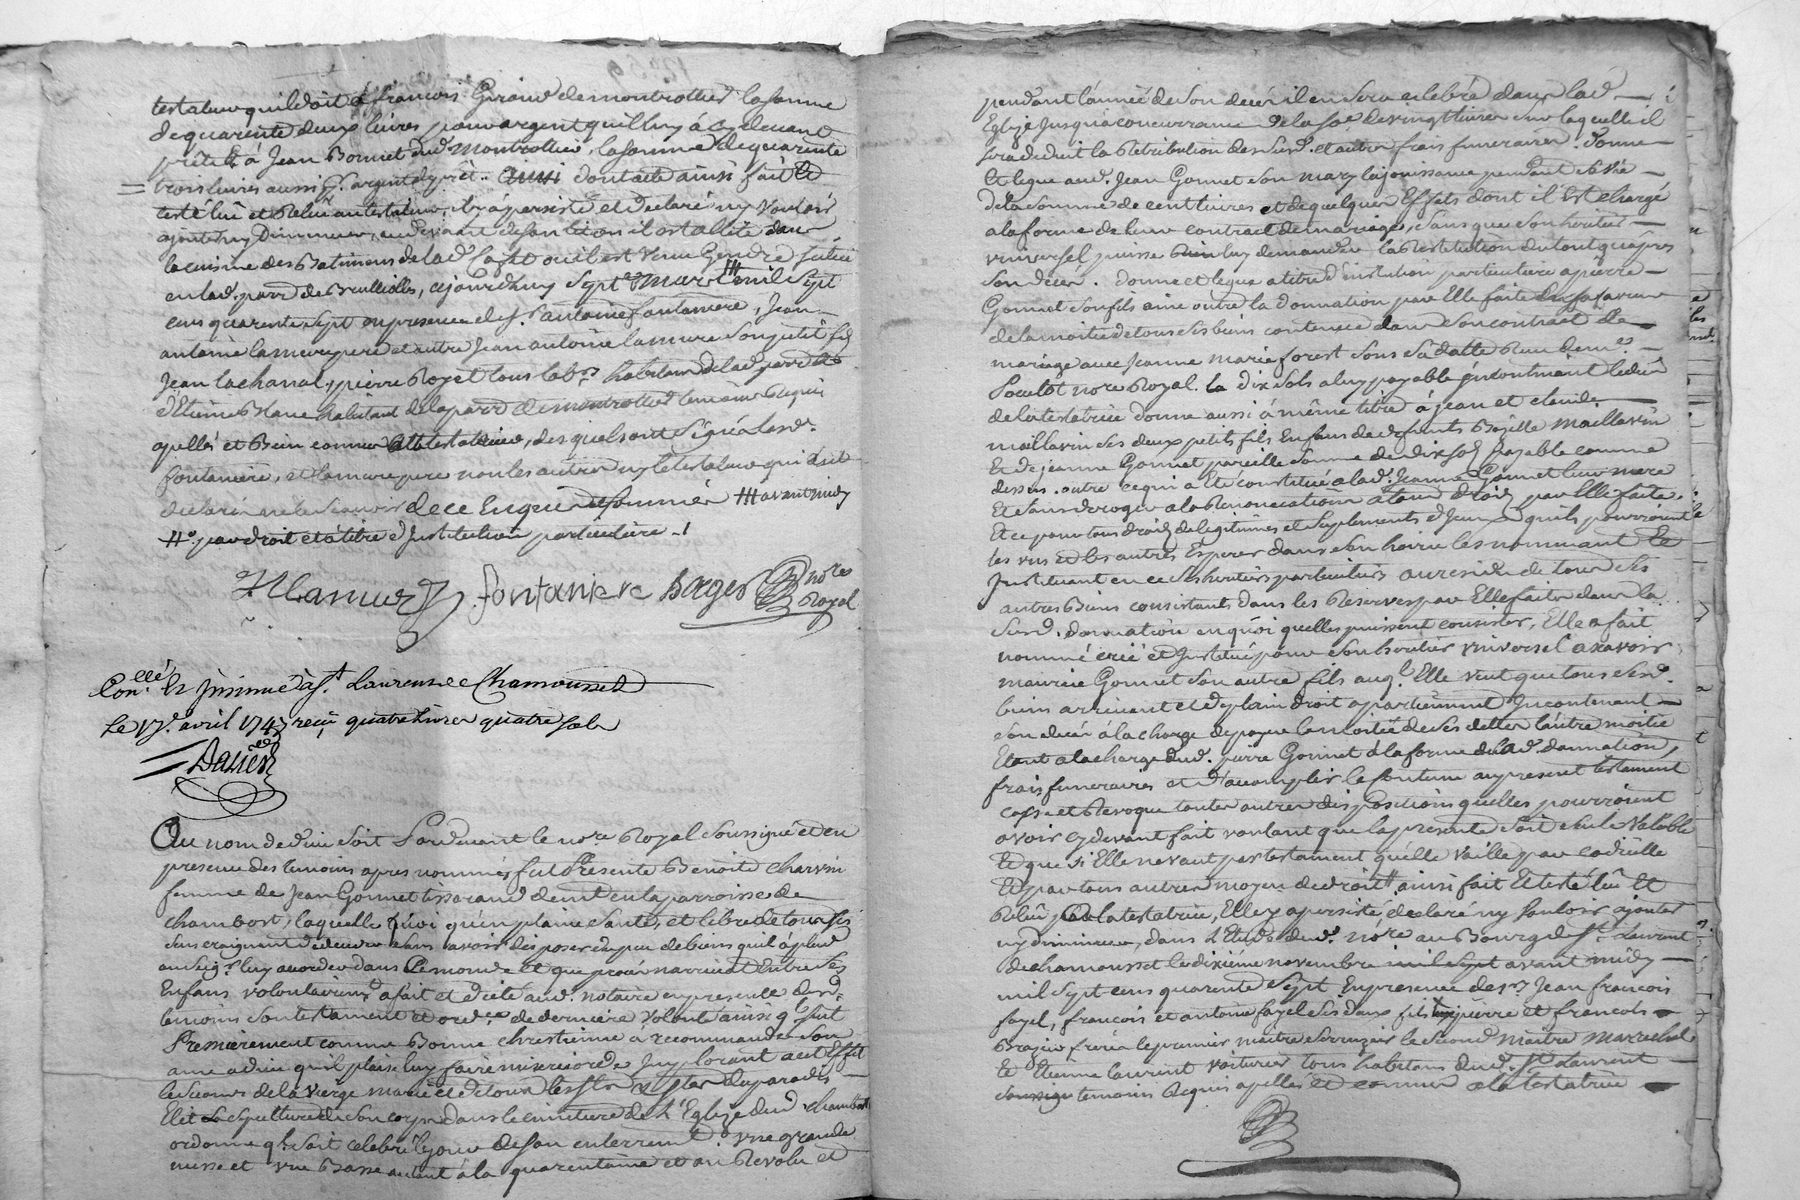 testateur quil doit a francois Giraud de montrottier la somme
de quarente deux livres pour argent quil luy à cy devant
prêtté à Jean Bonnet dud. montrottier, la somme de quarente
trois livres aussi pr. argent de prêt. dont acte ainsi fait et
testé lû et relû au testateur, il y a persisté et declaré ny vouloir
ajouter ny diminuer, au devant de son lit ou il est allitté dans
la cuisine des batimens de lad.
en lad. parr. de Brullioles, ce jourdhuy sept mars mil sept
cens quarente sept en presence de sr. antoine fontaniere, Jean
antoine lamure pere et autre Jean antoine lamure son petit fils
Jean lachanal, pierre Royet tous labrs. habitans de lad. parr. et
d'Etienne Blanc habitant de la parr. de montrottier temoins requis
apellés et bien connus du testateur, desquels ont signé lesd.
fontaniere, et lamure pere non les autres ny le testateur qui ont
declaré ne le scavoir de ce enquis et sommés ǂǂǂ avant midy
ǂǂo. par droit et à titre d'institution particuliere
Lamure fontaniere Bages nore Royal
Conllé et insinué à st. Laurens de Chamousset
le 17e. avril 1747 reçu quatre livres quatre sols
Au nom de dieu soit Pardevant le nore. Royal soussigné et en
presence des temoins apres nommés fut Presente Benoite charvin
femme de Jean Gonnet tisserand demt. en la parroisse de
chambost, laquelle quoi qu'en plaine santé, et libre de tous ses
sens craignant de deceder sans avoir disposé du peu de biens quil à plu
au seigr. luy accorder dans ce monde et que procés narrivat entre ses
Enfans volontairemt. a fait et dicté aud. notaire en presence desd.
temoins son testament et ordce. de derniere volonté ainsi q. suit
Premierement comme bonne chrestienne a recommandé son
ame a dieu quil plaise luy faire misericorde, Implorant a cet Effet
le secours de la vierge marie et de tous les sts. et stes. du paradis
Elit sa sepulture de son corps dans le cimetiere de l'Eglize dud. chambost
ordonne ql. soit celebré le jour de son enterremt. une grande
messe et une basse autant à la quarentaine et au revolu et
pendant l'année de son decés il en sera celebré dans lad.
Eglize jusqua concurrance de la soe. de vingt livres sur laquelle il
sera deduit la retribution des susd. et autres frais funeraires. Donne
et legue aud. Jean Gonnet son mary la jouissance pendant sa vie
de la somme de cent livres et de quelques Effets dont il Est chargé
a la forme de leur contract de mariage, sans que son heritier
universel puisse rien luy demander la restitution du tout qu'apres
son decés. Donne et legue a titre d'institution particuliere a pierre
Gonnet son fils aine outre la donnation par Elle faite en sa faveur
de la moitié de tous ses biens contenue dans son contract de
mariage avec Jeanne marie forest sous sa datte
nore Royal. la dix sols a luy payable incontinant le decés
de la testatrice donne aussi à même titre à jean et claude
maillavin ses deux petits fils Enfans de defunts maillavin
Et de jeanne Gonnet pareille somme de dix sols payable comme
dessus. outre ce qui a Eté constitué a lad. Jeanne Gonnet leur mere
Et sans deroger a la renonciation a tous droits par Elle faite.
Et ce pour tous droits de legitimes et suplements d'Iceux qu'ils pourroient
les uns et les autres Esperer dans son hoirie les nommant Et
Instituant en ce ses heritiers particuliers au residu de tous ses
autres biens consistants dans les reserves par Elle faites dans la
susd. donnation en quoi quelles puissent consister, Elle a fait
nommé créé et Institué pour son heritier universel a scavoir
maurice Gonnet son autre fils auql. Elle veut que tous sesd.
biens arrivent et de plain droit apartiennent Incontinent
son decés à la charge de payer la moitié de ses dettes l'autre moitie
Etant a la charge dud. pierre Gonnet à la forme de lad. donnation,
frais funeraires et d'acomplir le contenu au present testament
casse et revoque toutes autres dispositions quelles pourroient
avoir cy devant fait voulant que la presente soit seule valable
Et que si Elle ne vaut par testament qu'elle vaille par codicille
Et par tous autres moyen de droit, ainsi fait Et testé lû Et
relû a la testatrice, Elle y a persisté, declaré ny vouloir ajouter
ny diminuer, dans l'Etude dud. nore au Bourg de st. Laurent
de chamousset le dixième novembre avant midy
mil sept cens quarente sept En presence de sr. Jean francois
fayel, francois et antoine fayel ses deux fils pierre et francois
Brazier freres le premier maitre serrurier le second maitre marechal
Et Etienne laurent voiturier tous habitans dud. st. Laurent
temoins requis apellés et connus a la testatrice